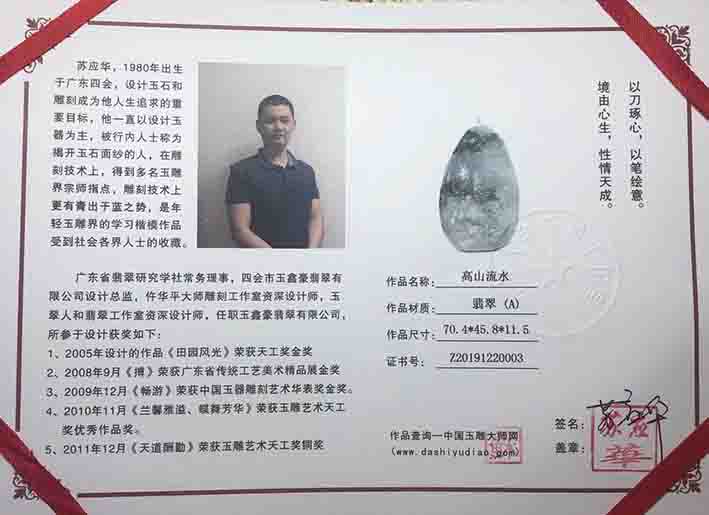 苏应华，1980年出生
于广东四会，设计玉石和
雕刻成为他人生追求的重
要目标，他一直以设计玉
器为主，被行内人士称为
揭开玉石面纱的人，在雕
刻技术上，得到多名玉雕
界宗师指点，雕刻技术上
更有青出于蓝之势，是年
轻玉雕界的学习楷模作品
受到社会各界人士的收藏。
广东省翡翠研究学社常务理事，四会市玉鑫豪翡翠有
限公司设计总监，仵华平大师雕刻工作室资深设计师，玉
翠人和翡翠工作室资深设计师，任职玉鑫豪翡翠有限公司，
所参于设计获奖如下：
1、2005年设计的作品《田园风光》荣获天工奖金奖
2、2008年9月《搏》荣获广东省传统工艺美术精品展金奖
3、2009年12月《畅游》荣获中国玉器雕刻艺术华表奖金奖。
4、2010年11月《兰馨雅溢、蝶舞芳华》荣获玉雕艺术天工
奖优秀作品奖。
5、2011年12月《天道酬勤》荣获玉雕艺术天工奖铜奖
以刀琢心，以笔绘意。
境由心生，性情天成。
作品名称：高山流水
作品材质：翡翠（A）
作品尺寸：70.4*45.8*11.5
证书号：Z20191220003
作品查询—中国玉雕大师网
（www.dashiyudiao.com）
签名：苏应华
盖章：